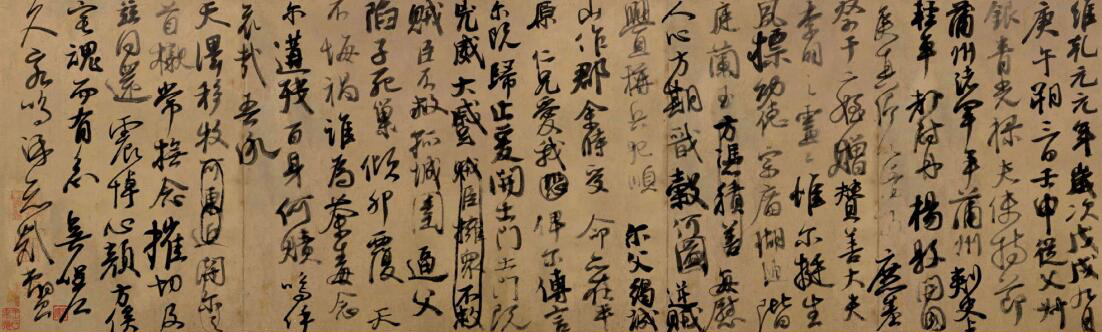 維乾元元年歲次戊戌九月
庚午朔三日壬申從父
銀青光祿夫使持節
蒲州諸軍事蒲州刺史上
輕車都尉丹楊縣開國
庶羞
祭于亡姪贈贊善大夫
季明之靈 惟爾挺生
夙標幼德宗廟瑚璉階
庭蘭玉方憑積善每慰
人心方期戩穀何圖逆賊
稱兵犯順 爾父竭誠
山作郡余時受 命亦在平
原仁兄愛我 俾爾傳言
爾既歸止爰開土門土門既
凶威大蹙賊臣擁衆不救
賊臣不救孤城圍逼父
陷子死巢傾卵覆天
不悔禍誰為荼毒念
爾遘殘百身何贖嗚呼
哀哉吾承
天澤移牧河東近 爾之
首櫬常撫念摧切
茲同還震悼心顏方俟
宅魂而有知無嗟
久客嗚呼哀哉尚饗